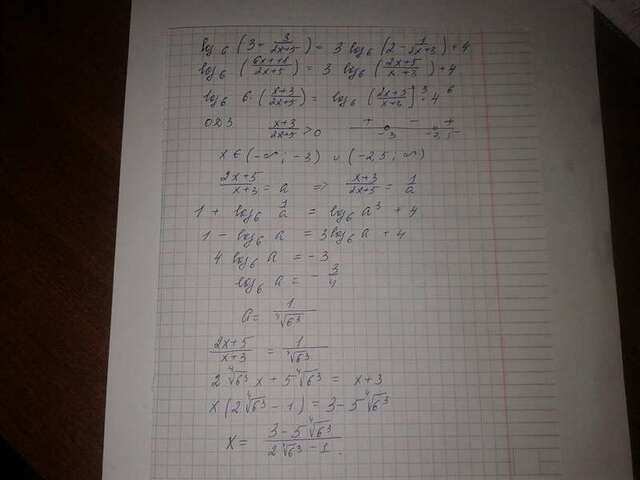 log₆ (3 + 3/(2x+5)) = 3 log₆ (2 - 1/(x+3)) + 4
log₆ (6x+18)/(2x+5) = 3 log₆ ((2x+5)/(x+3)) + 4.
log₆ 6 · (x+3)/(2x+5) = log₆ [(2x+5)/(x+3)]³ · 4⁶
ОДЗ (x+3)/(2x+5) > 0 + - + -3 -2,5
x ∈ (-∞; -3) ∪ (-2,5; ∞)
(2x+5)/(x+3) = a => (x+3)/(2x+5) = 1/a
1 + log₆ 1/a = log₆ a³ + 4
1 - log₆ a = 3log₆ a + 4
4 log₆ a = -3
log₆ a = -3/4
a = 1/⁴√6³
(2x+5)/(x+3) = 1/⁴√6³
2 ⁴√6³ x + 5 ⁴√6³ = x+3
x (2 ⁴√6³ - 1) = 3 - 5 ⁴√6³
x = (3 - 5 ⁴√6³)/(2 ⁴√6³ - 1).